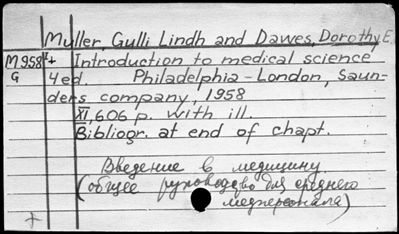 Muller, Gulli Lindh and Dawes, Dorothy E.
M958 I+ Introduction to medical science
G 4ed. Philadelphia - London, Saun-
ders company, 1958
XI, 606 p. with ill.
Bibliogr. at end of chapt.
Введение в медицину
(общее руководство для среднего
медперсонала)
+